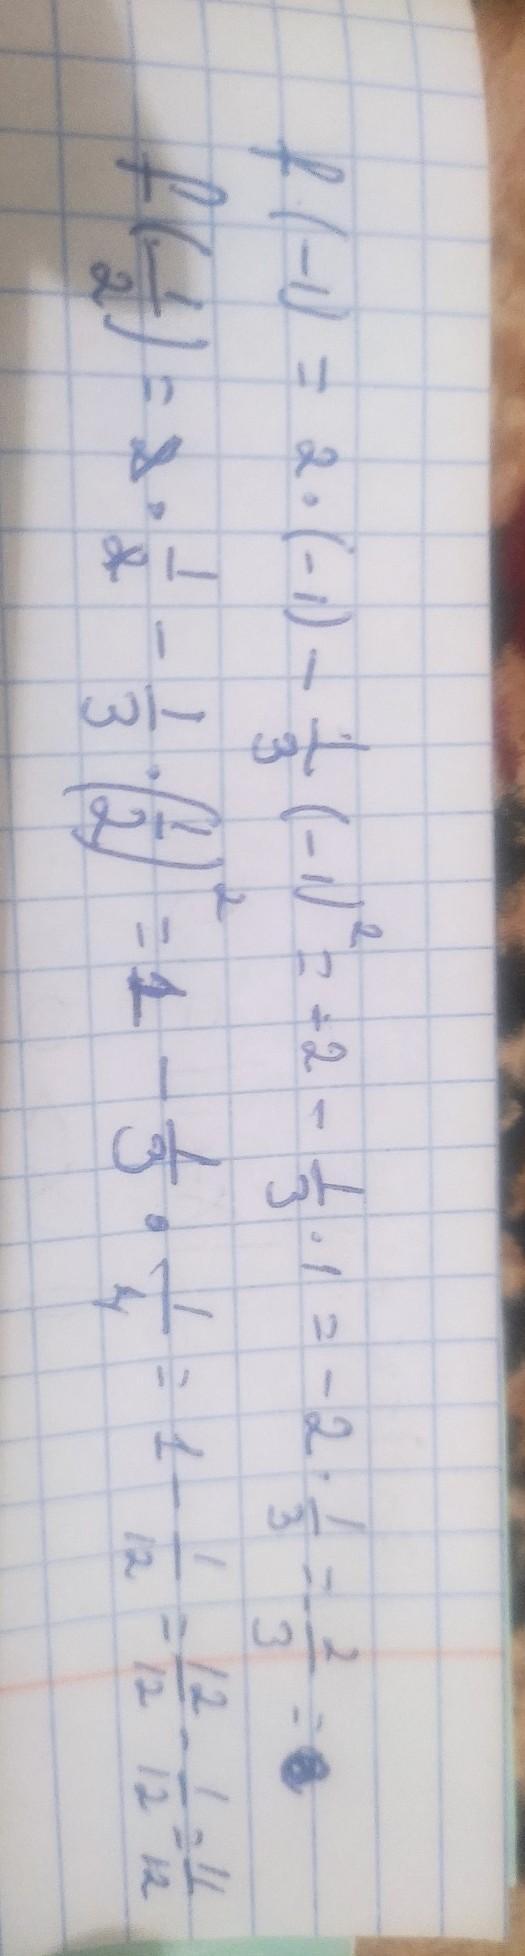 f(-1) = 2·(-1) - 1/3 (-1)² = -2 - 1/3 · 1 = -2 · 1/3 = -2/3 =
f(1/2) = 2 · 1/2 - 1/3 · (1/2)² = 1 - 1/3 · 1/4 = 1 - 1/12 = 12/12 - 1/12 = 11/12